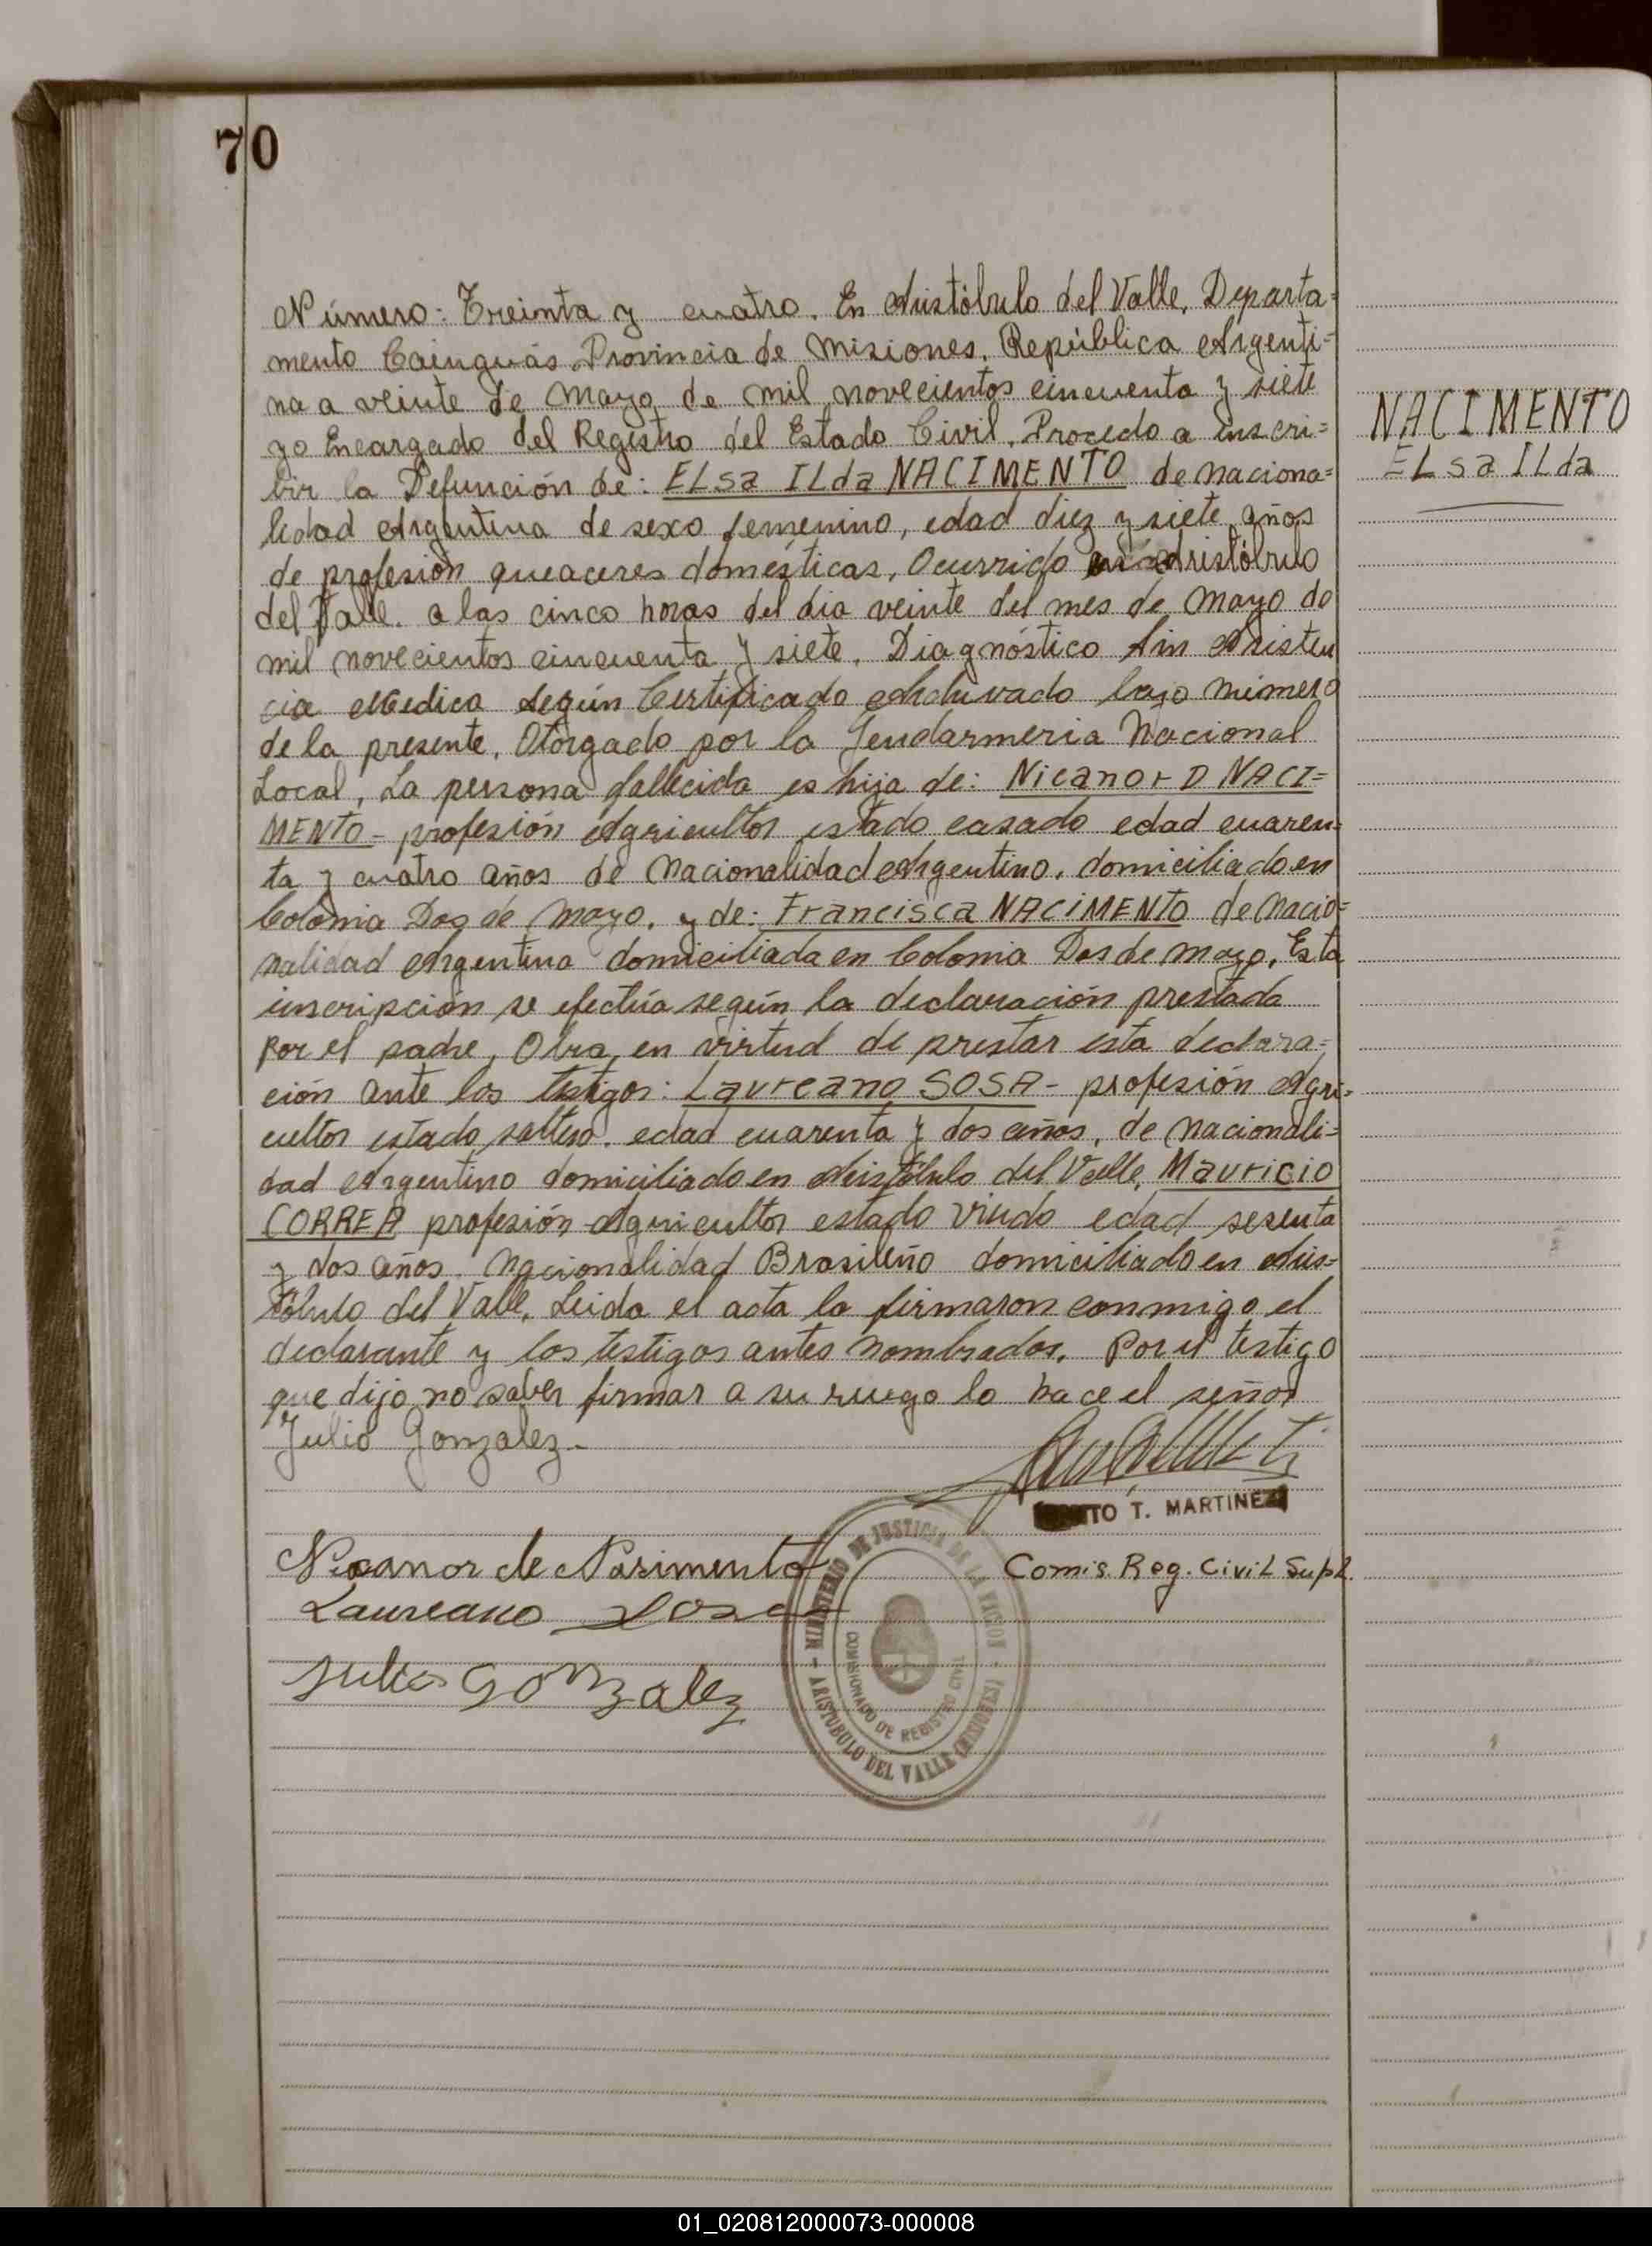 70
Número: Treinta y cuatro. En Aristóbulo del Valle, Departa=
mento Cainguás Provincia de Misiones. República Argenti=
na a veinte de Mayo de mil novecientos cincuenta y siete
yo Encargado del Registro del Estado Civil. Procedo a inscri=
bir la Defunción de: ELsa ILda NACIMENTO de naciona=
lidad Argentina de sexo femenino, edad diez y siete años
de profesión queaceres domésticas, Ocurrido en Aristóbulo
del Valle. a las cinco horas del dia veinte del mes de Mayo de
mil novecientos cincuenta y siete. Diagnóstico Sin Asisten
cia Medica según Certificado Archivado bajo número
de la presente, Otorgado por la Gendarmeria Nacional
Local, La persona fallecida es hija de: Nicanor D NACI=
MENTO - profesión Agricultor estado casado edad cuaren=
ta y cuatro años de Nacionalidad Argentino. domiciliado en
Colonia Dos de Mayo. y de: Francisca NACIMENTO de Nacio=
nalidad Argentina domiciliada en Colonia Dos de Mayo. Esta
inscripción se efectúa según la declaración prestada
por el padre, Obra en virtud de prestar esta declara=
ción ante los testigos: Laureano SOSA - profesión Agri=
cultor estado soltero. edad cuarenta y dos años, de nacionali=
dad Argentino domiciliado en Aristóbulo del Valle, Mauricio
CORREA profesión Agricultor estado viudo edad sesenta
y dos años. Nacionalidad Brasileño domiciliado en Aris=
tóbulo del Valle. Leida el acta la firmaron conmigo el
declarante y los testigos antes nombrados. Por el testigo
que dijo no saber firmar a su ruego lo hace el señor
Julio Gonzalez.-
TO T. MARTINEZ
Comis. Reg. Civil Supl.
Nicanor de Nasimento
Laureano Sosa
Julio Gonzalez
MINISTERIO DE JUSTICIA DE LA NACION
COMISIONADO DE REGISTRO CIVIL
ARISTOBULO DEL VALLE (MISIONES)
NACIMENTO
ELsa ILda
01_020812000073-000008